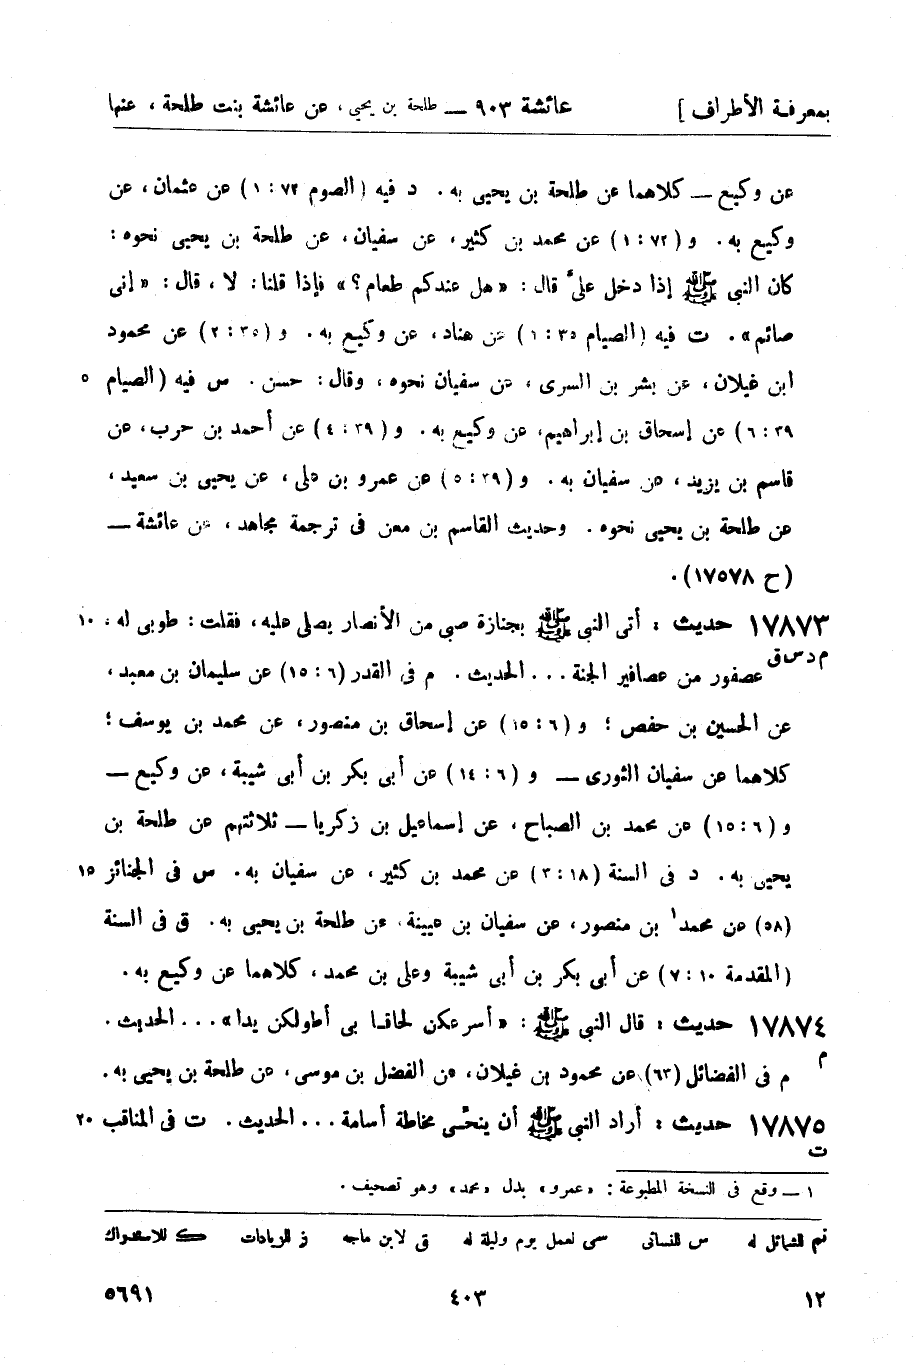 بمعرفة الأطراف ] عائشة ٩٠٣ ــ طلحة بن يحيى ، عن عائشة بنت طلحة ، عنها
عن وكيع ــ كلاهما عن طلحة بن يحيى به . د فيه ( الصوم ٧٢ : ١ ) عن عثمان ، عن
وكيع به . و ( ٧٢ : ١ ) عن محمد بن كثير ، عن سفيان ، عن طلحة بن يحيى نحوه :
كان النبى ﷺ إذا دخل علىّ قال : « هل عندكم طعام ؟ » فإذا قلنا : لا ، قال : « إنى
صائم » . ت فيه ( الصيام ٣٥ : ١ ) عن هناد ، عن وكيع به . و ( ٣٥ : ٢ ) عن محمود
ابن غيلان ، عن بشر بن السرى ، عن سفيان نحوه ، وقال : حسن . س فيه ( الصيام ٥
٣٩ : ٦ ) عن إسحاق بن إبراهيم ، عن وكيع به . و ( ٣٩ : ٤ ) عن أحمد بن حرب ، عن
قاسم بن يزيد ، عن سفيان به . و ( ٣٩ : ٥ ) عن عمرو بن على ، عن يحيى بن سعيد ،
عن طلحة بن يحيى نحوه . وحديث القاسم بن معن فى ترجمة مجاهد ، عن عائشة ــ
( ح ١٧٥٧٨ ) .
١٧٨٧٣ حديث : أتى النبى ﷺ بجنازة صبى من الأنصار يصلى عليه ، فقلت : طوبى له ، ١٠
م د س ق عصفور من عصافير الجنة . . . الحديث . م فى القدر ( ٦ : ١٥ ) عن سليمان بن معبد ،
عن الحسين بن حفص ؛ و ( ٦ : ١٥ ) عن إسحاق بن منصور ، عن محمد بن يوسف ؛
كلاهما عن سفيان الثورى ــ و ( ٦ : ١٤ ) عن أبى بكر بن أبى شيبة ، عن وكيع ــ
و ( ٦ : ١٥ ) عن محمد بن الصباح ، عن إسماعيل بن زكريا ــ ثلاثتهم عن طلحة بن
يحيى به . د فى السنة ( ١٨ : ٣ ) عن محمد بن كثير ، عن سفيان به . س فى الجنائز ١٥
( ٥٨ ) عن محمد ١ بن منصور ، عن سفيان بن عيينة ، عن طلحة بن يحيى به . ق فى السنة
( المقدمة ١٠ : ٧ ) عن أبى بكر بن أبى شيبة وعلى بن محمد ، كلاهما عن وكيع به .
١٧٨٧٤ حديث : قال النبى ﷺ : « أسرعكن لحاقا بى أطولكن يدا » . . . الحديث .
م م فى الفضائل ( ٦٣ ) عن محمود بن غيلان ، عن الفضل بن موسى ، عن طلحة بن يحيى به .
١٧٨٧٥ حديث : أراد النبى ﷺ أن ينحّى مخاطة أسامة . . . الحديث . ت فى المناقب ٢٠
ت
١ ــ وقع فى النسخة المطبوعة : « عمرو » بدل « محمد » وهو تصحيف .
تم الشمائل له س للنسائى سى لعمل يوم وليلة له ق لابن ماجه ز للزيادات ك للاستدراك
١٢ ٤٠٣ ٥٦٩١